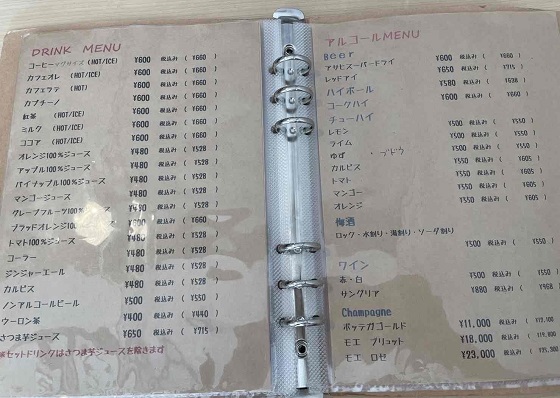 DRINK MENU
コーヒーマグサイズ (HOT/ICE) ¥600 税込み ( ¥660 )
カフェオレ (HOT/ICE) ¥600 税込み ( ¥660 )
カフェラテ (HOT) ¥600 税込み ( ¥660 )
カプチーノ ¥600 税込み ( ¥660 )
紅茶 (HOT/ICE) ¥600 税込み ( ¥660 )
ミルク (HOT/ICE) ¥600 税込み ( ¥660 )
ココア (HOT/ICE) ¥600 税込み ( ¥660 )
オレンジ100%ジュース ¥480 税込み ( ¥528 )
アップル100%ジュース ¥480 税込み ( ¥528 )
パイナップル100%ジュース ¥480 税込み ( ¥528 )
マンゴージュース ¥480 税込み ( ¥528 )
グレープフルーツ100%ジュース ¥480 税込み ( ¥528 )
ブラッドオレンジ100%ジュース ¥600 税込み ( ¥660 )
トマト100%ジュース ¥480 税込み ( ¥528 )
コーラー ¥480 税込み ( ¥528 )
ジンジャーエール ¥480 税込み ( ¥528 )
カルピス ¥480 税込み ( ¥528 )
ノンアルコールビール ¥500 税込み ( ¥550 )
ウーロン茶 ¥400 税込み ( ¥440 )
さつま芋ジュース ¥650 税込み ( ¥715 )
※セットドリンクはさつま芋ジュースを除きます
アルコールMENU
Beer
アサヒスーパードライ ¥600 税込み ( ¥660 )
レッドアイ ¥650 税込み ( ¥715 )
ハイボール ¥580 税込み ( ¥638 )
コークハイ ¥600 税込み ( ¥660 )
チューハイ
レモン ¥500 税込み ( ¥550 )
ライム ¥500 税込み ( ¥550 )
ゆず ・ブドウ ¥500 税込み ( ¥550 )
カルピス ¥550 税込み ( ¥605 )
トマト ¥550 税込み ( ¥605 )
マンゴー ¥550 税込み ( ¥605 )
オレンジ ¥550 税込み ( ¥605 )
梅酒
ロック・水割り・湯割り・ソーダ割り
¥500 税込み ( ¥550 )
ワイン
赤・白 ¥500 税込み ( ¥550 )
サングリア ¥880 税込み ( ¥968 )
Champagne
ボッテガゴールド ¥11,000 税込み ( ¥12,100 )
モエ ブリュット ¥18,000 税込み ( ¥19,800 )
モエ ロゼ ¥23,000 税込み ( ¥25,300 )